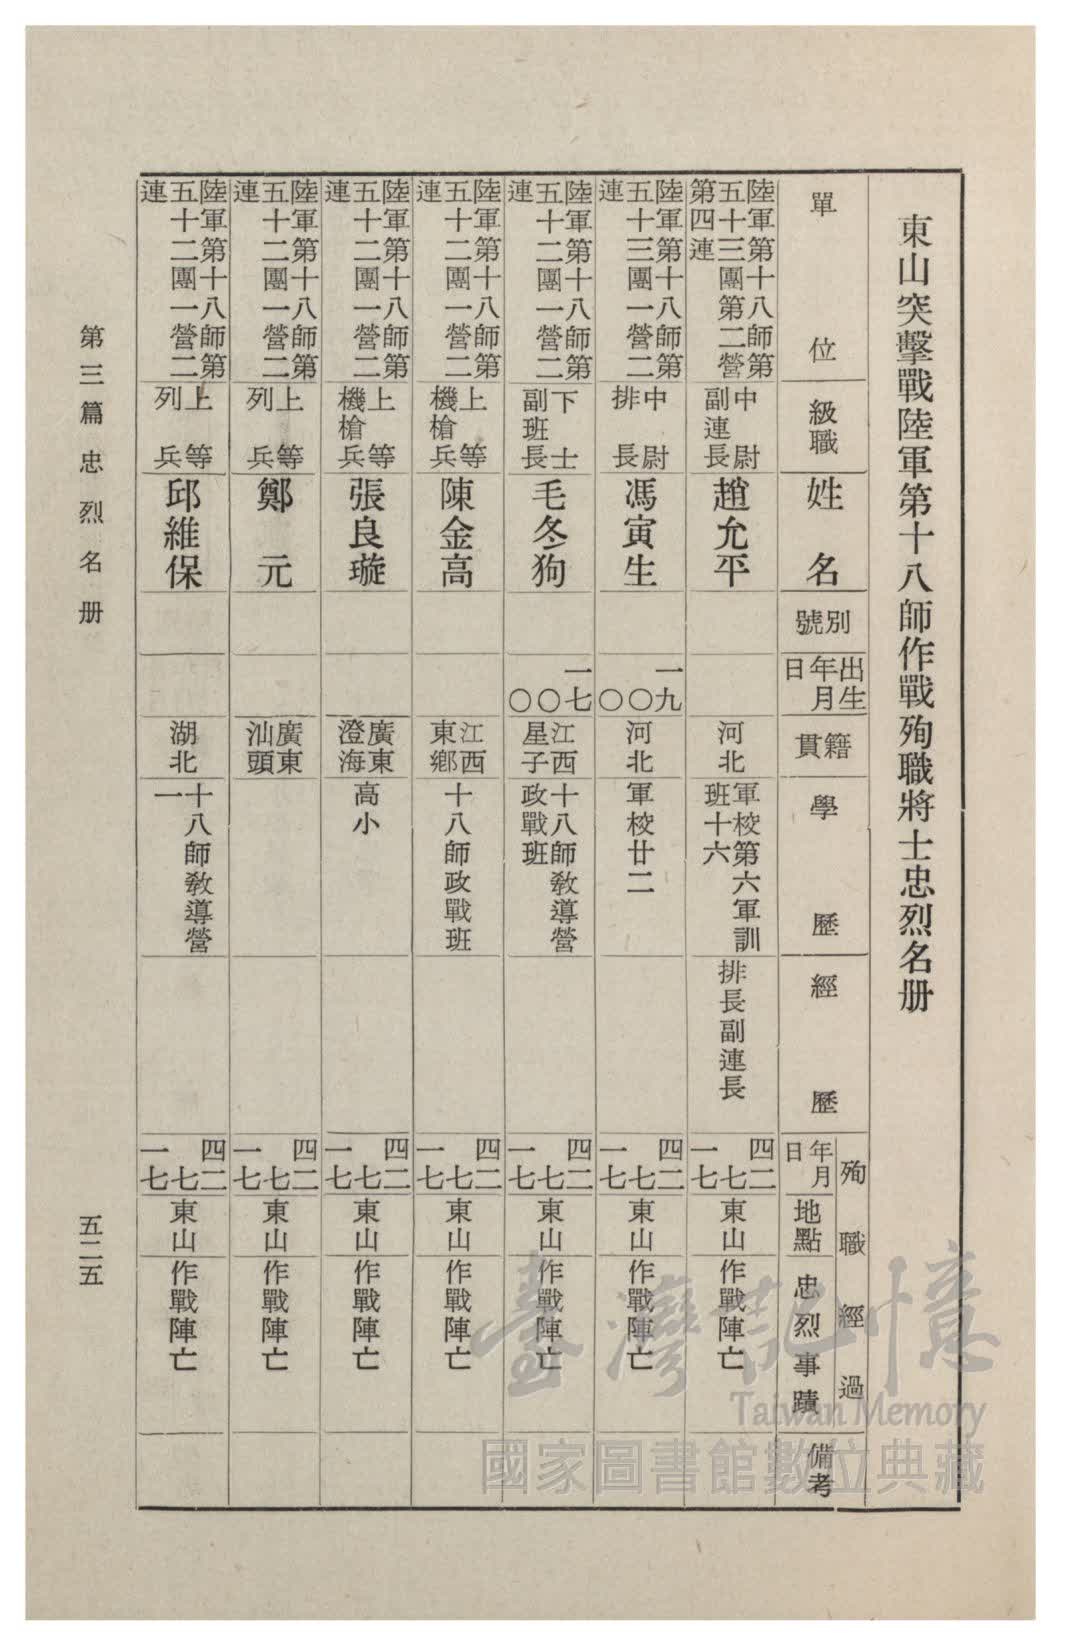 東山突擊戰陸軍第十八師作戰殉職將士忠烈名册
單位
級職
姓名
別號
出生
年月
日
籍貫
學歷
經歷
殉職經過
年月
日
地點
忠烈事蹟
備考
陸軍第十八師第
五十三團第二營
第四連
中尉
副連長
趙允平
河北
軍校第六軍訓
班十六
排長副連長
四二
七
一七
東山
作戰陣亡
陸軍第十八師第
五十三團一營二
連
中尉
排長
馮寅生
一九
〇
〇
河北
軍校廿二
四二
七
一七
東山
作戰陣亡
陸軍第十八師第
五十二團一營二
連
下士
副班長
毛冬狗
一七
〇
〇
江西
星子
十八師教導營
政戰班
四二
七
一七
東山
作戰陣亡
陸軍第十八師第
五十二團一營二
連
上等
機槍兵
陳金高
江西
東鄉
十八師政戰班
四二
七
一七
東山
作戰陣亡
陸軍第十八師第
五十二團一營二
連
上等
機槍兵
張良璇
廣東
澄海
高小
四二
七
一七
東山
作戰陣亡
陸軍第十八師第
五十二團一營二
連
上等
列兵
鄭元
廣東
汕頭
四二
七
一七
東山
作戰陣亡
陸軍第十八師第
五十二團一營二
連
上等
列兵
邱維保
湖北
十八師教導營
一
四二
七
一七
東山
作戰陣亡
第三篇忠烈名册
五二五
臺灣記憶
Taiwan Memory
國家圖書館數位典藏